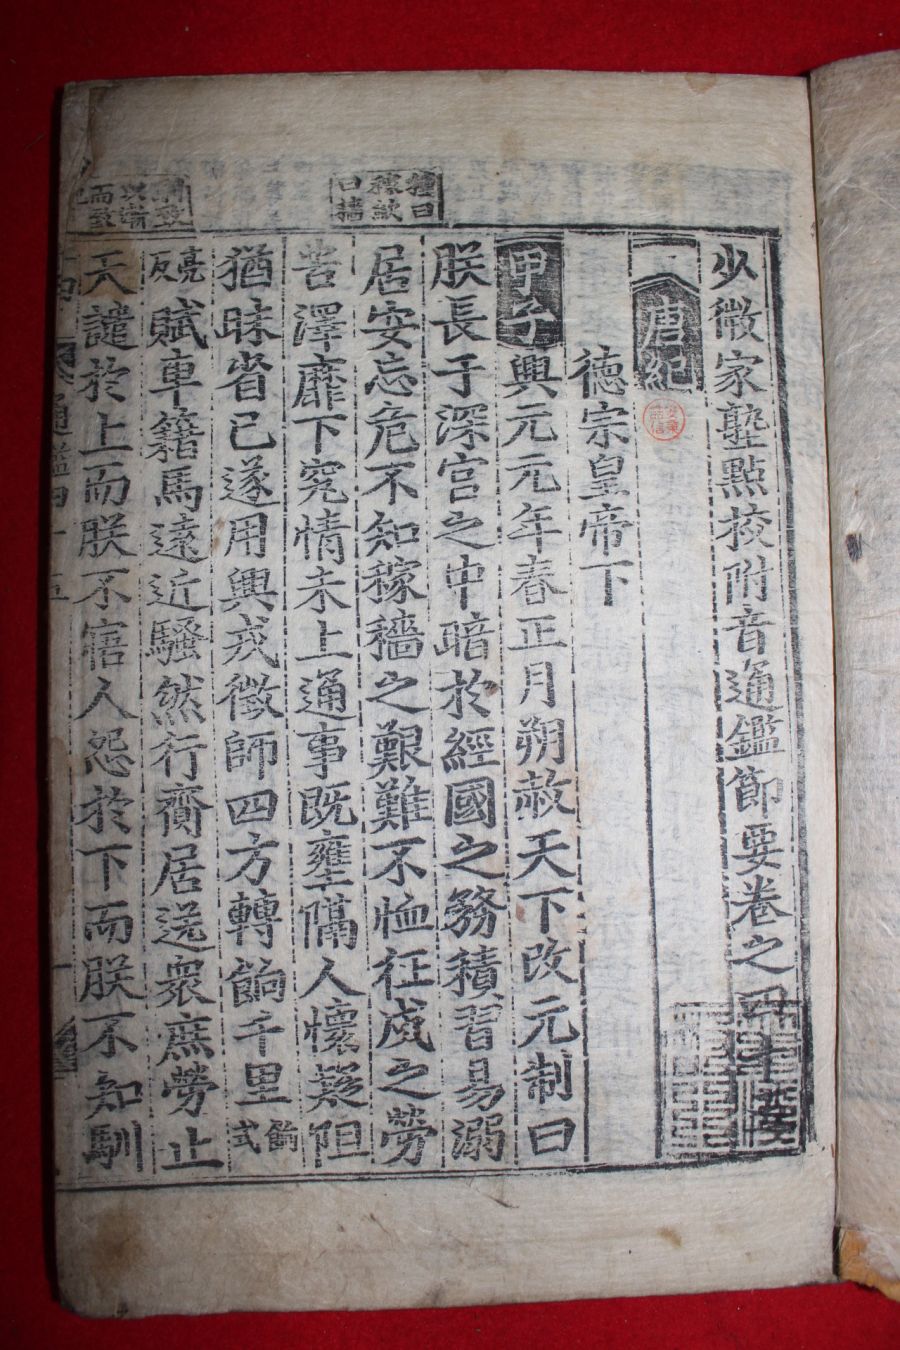 少微家塾點校附音通鑑節要卷之四十
唐紀
德宗皇帝下
甲子興元元年春正月朔赦天下改元制曰
朕長于深宮之中暗於經國之務積習易溺
居安忘危不知稼穡之艱難不恤征戍之勞
苦澤靡下究情未上通事旣壅隔人懷疑阻
猶昧省已遂用興戎徵師四方轉餉千里餉式
亮反賦車籍馬遠近騷然行齎居送衆庶勞止
天譴於上而朕不寤人怨於下而朕不知馴
種曰
稼歛
曰穡